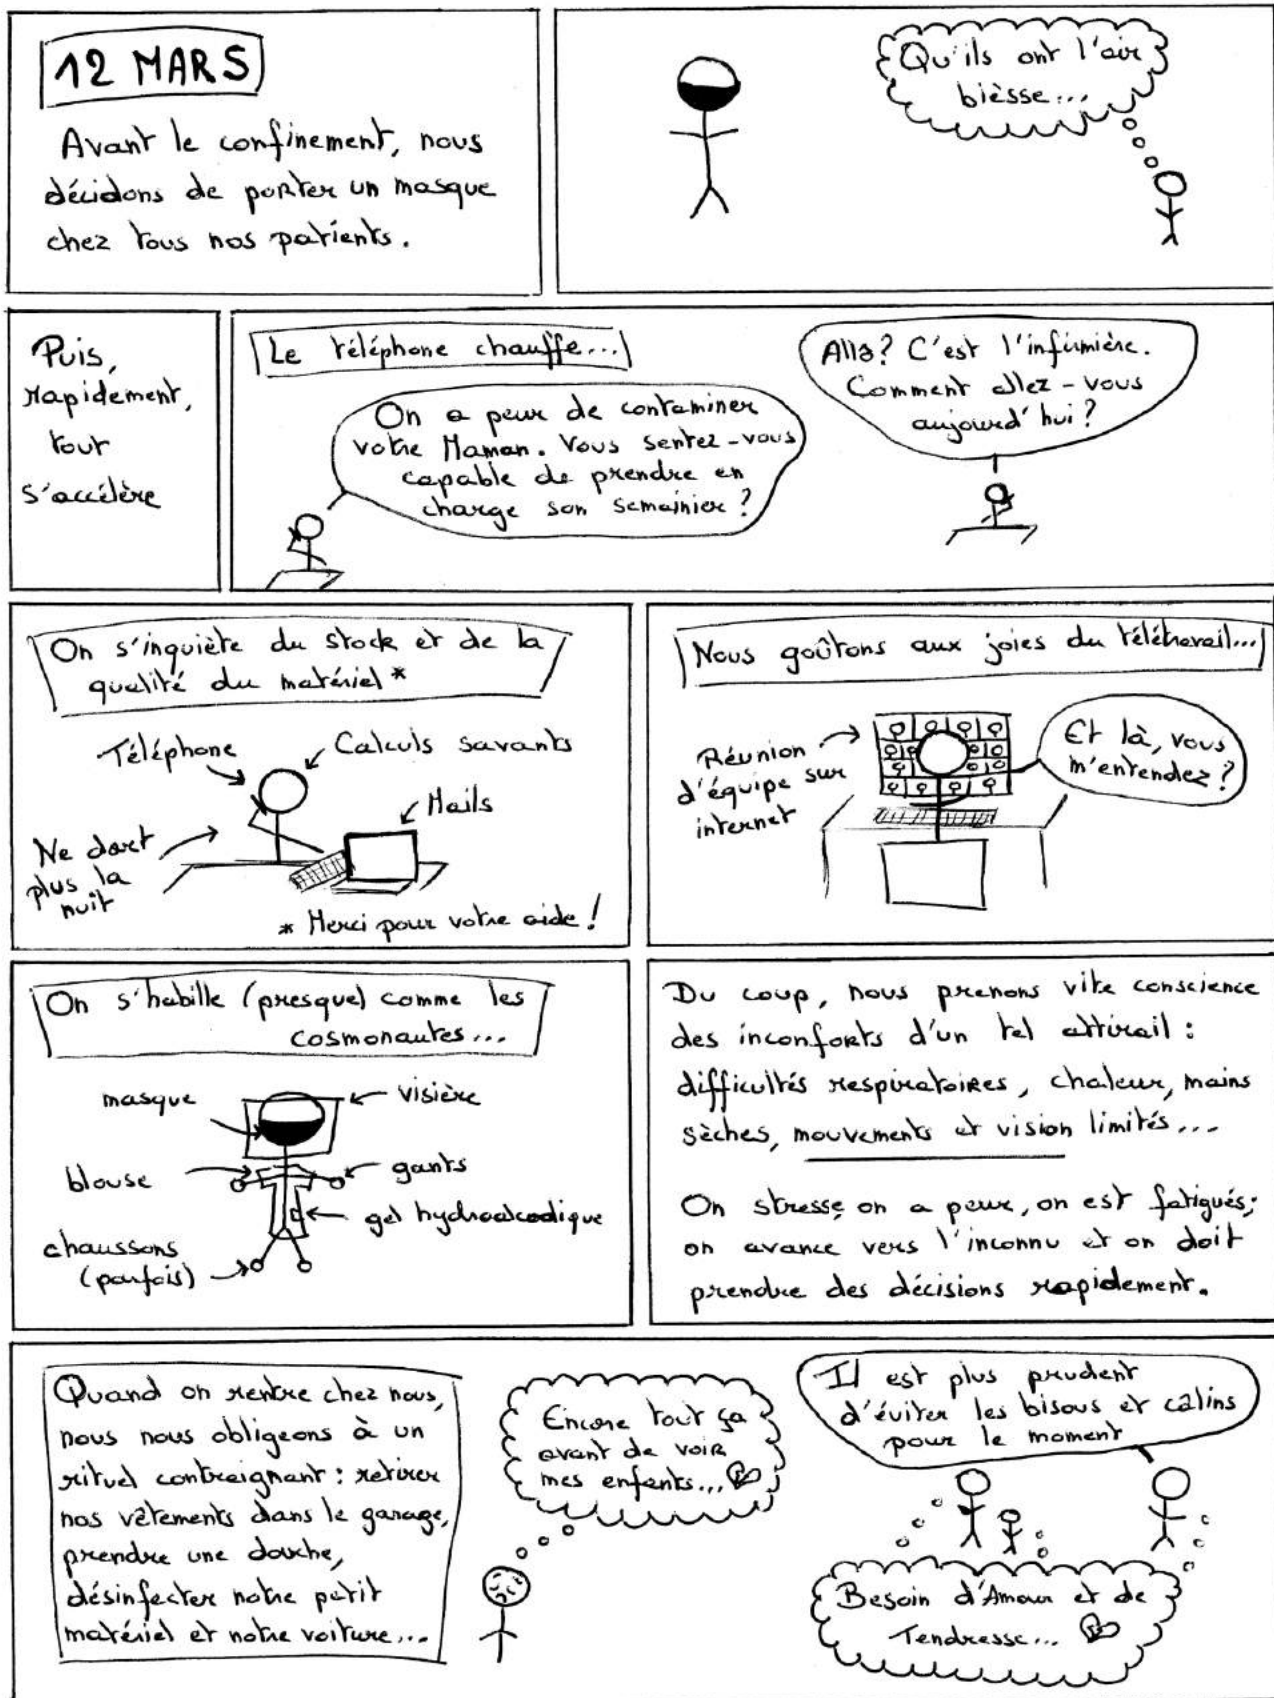 12 MARS
Avant le confinement, nous
décidons de porter un masque
chez tous nos patients.
Qu'ils ont l'air
bièsse...
Puis,
rapidement,
tout
s'accélère
Le téléphone chauffe...
On a peur de contaminer
votre Maman. Vous sentez-vous
capable de prendre en
charge son semainier?
Allo? C'est l'infirmière.
Comment allez-vous
aujourd'hui?
On s'inquiète du stock et de la
qualité du matériel*
Téléphone
Calculs savants
Mails
Ne dort
plus la
nuit
* Merci pour votre aide!
Nous goûtons aux joies du télétravail...
Réunion
d'équipe sur
internet
Et là, vous
m'entendez?
On s'habille (presque) comme les
cosmonautes...
masque
visière
blouse
gants
gel hydroalcoolique
chaussons
(parfois)
Du coup, nous prenons vite conscience
des inconforts d'un tel attirail:
difficultés respiratoires, chaleur, mains
sèches, mouvements et vision limités...
On stresse, on a peur, on est fatigués;
on avance vers l'inconnu et on doit
prendre des décisions rapidement.
Quand on rentre chez nous,
nous nous obligeons à un
rituel contraignant: retirer
nos vêtements dans le garage,
prendre une douche,
désinfecter notre petit
matériel et notre voiture...
Encore tout ça
avant de voir
mes enfants...
Il est plus prudent
d'éviter les bisous et calins
pour le moment
Besoin d'Amour et de
Tendresse...